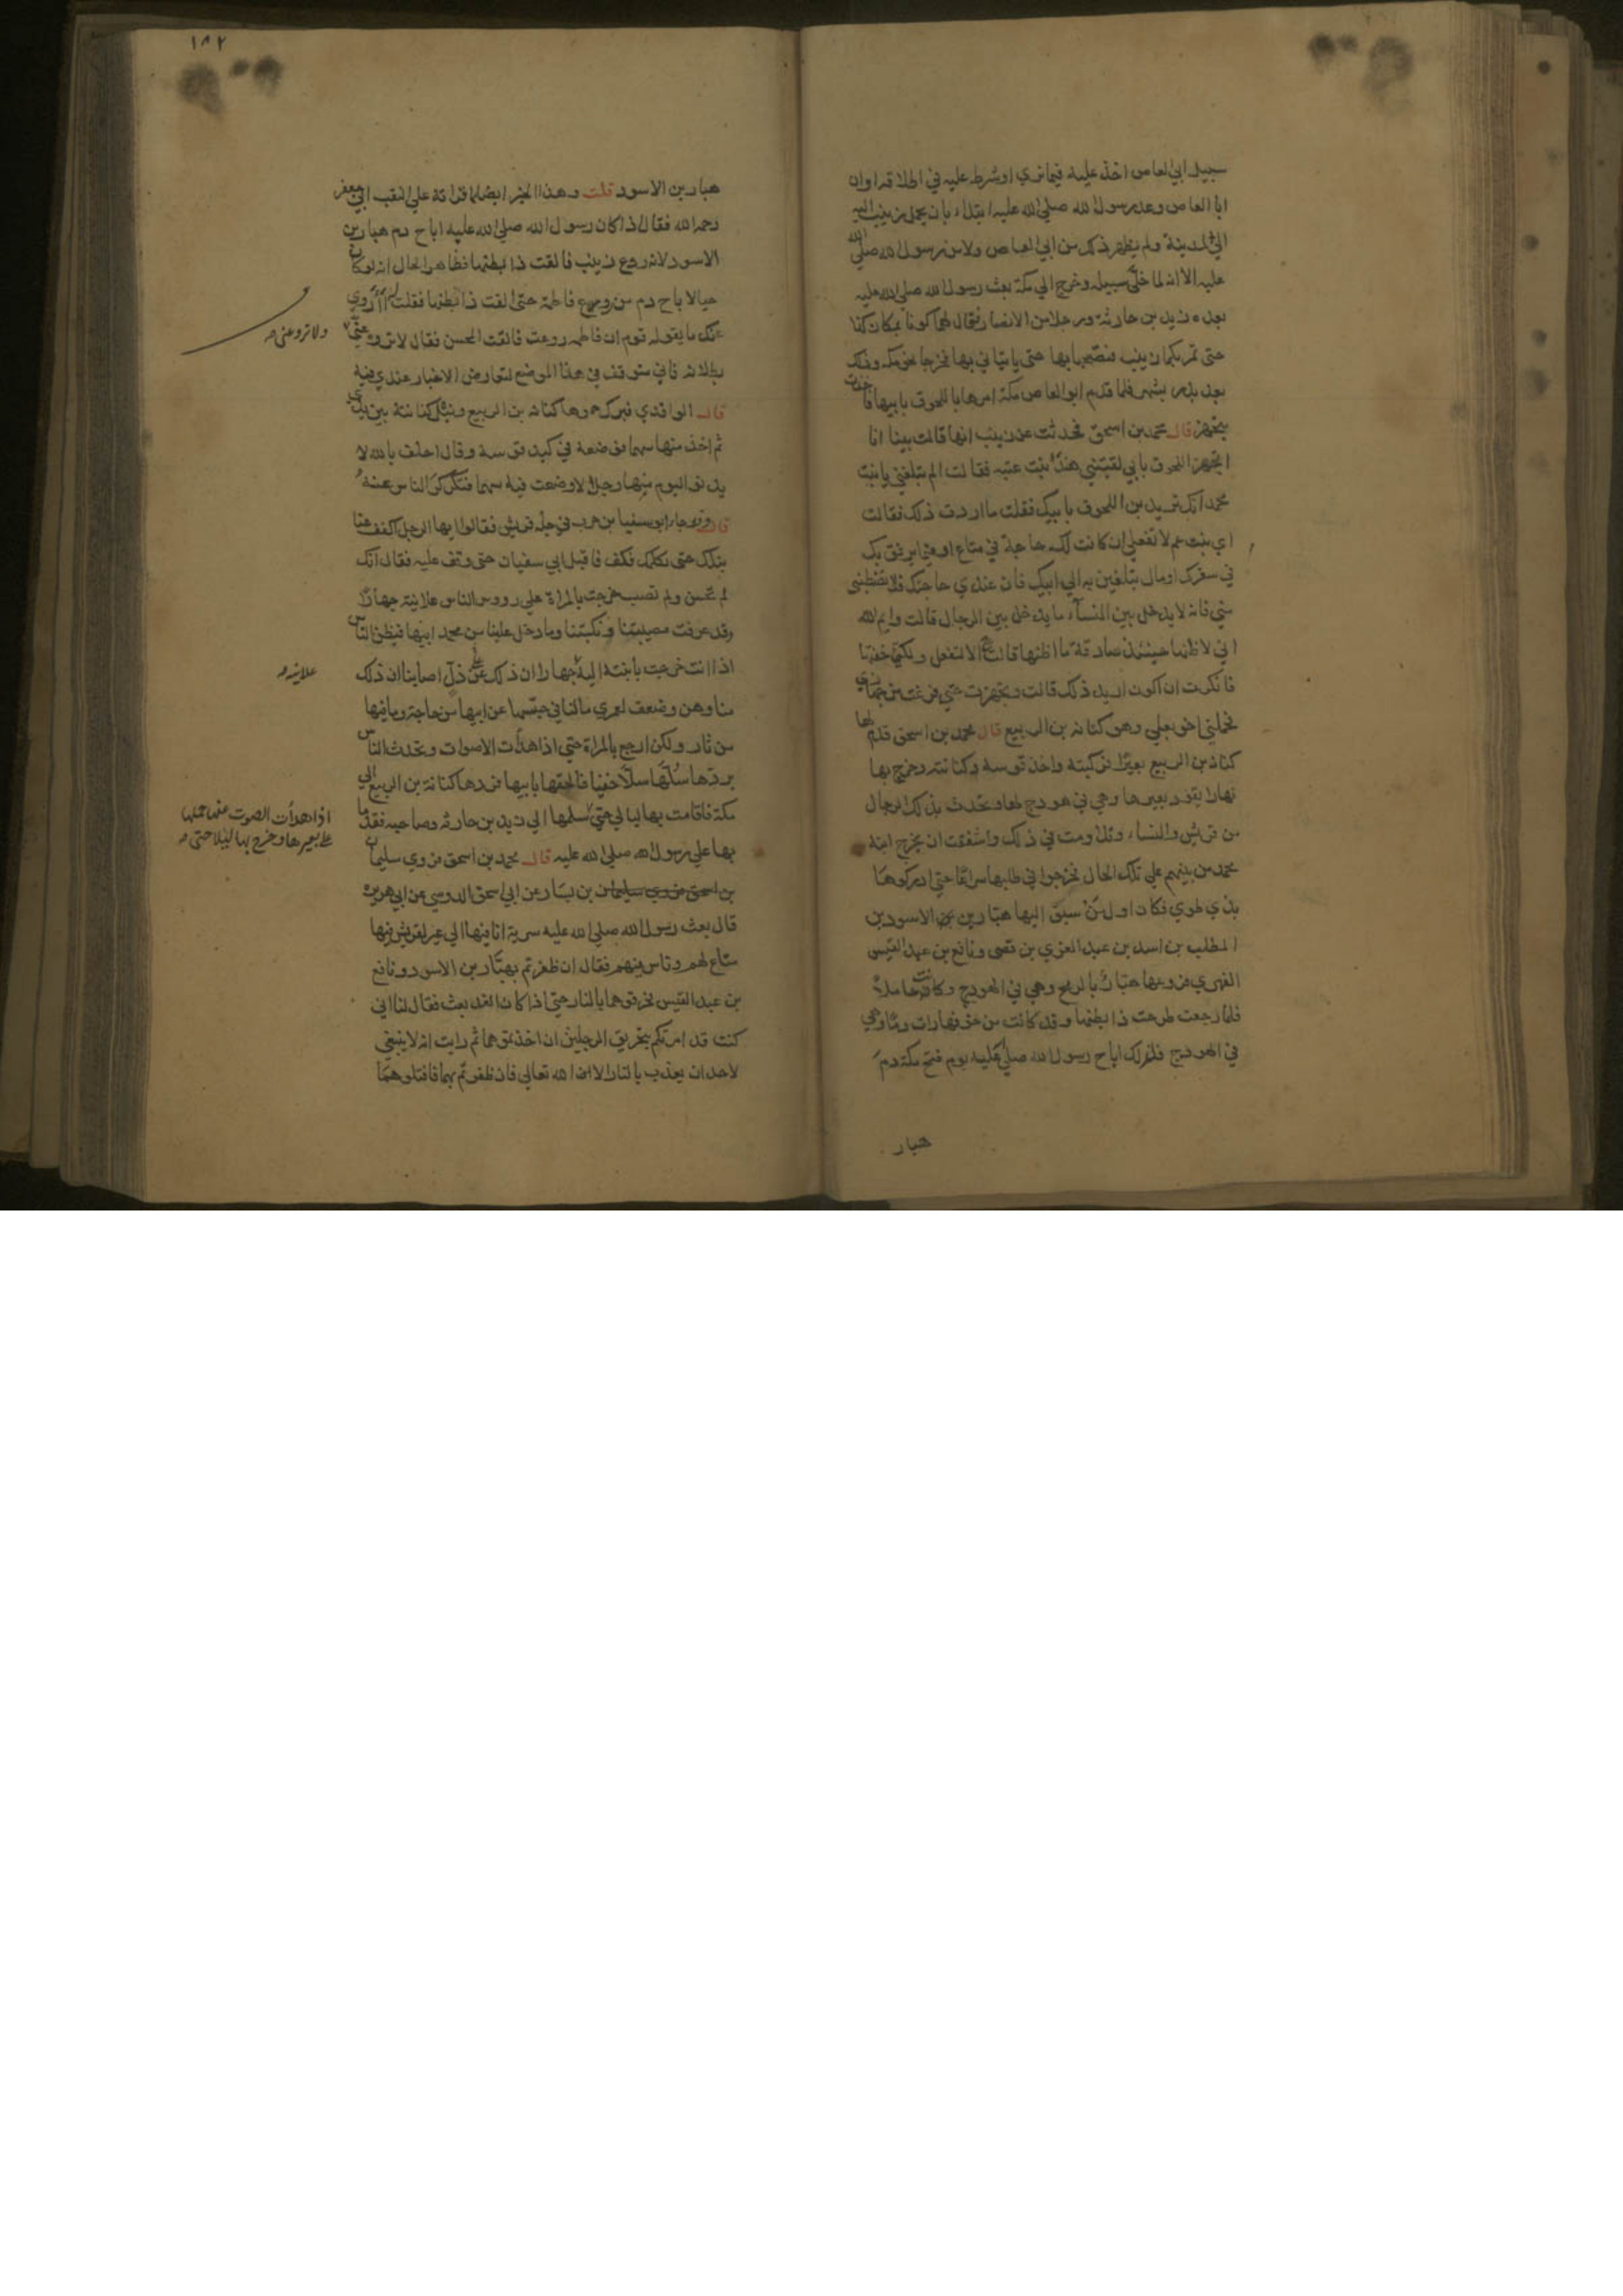 سبيل ابي العاص اخذ عليه فيما نري او شرط عليه في اطلاقه او ان
ابا العاص وعد رسول الله صلي الله عليه ابتداء بان يحمل زينب اليه
الي المدينة ولم يظهر ذلك من ابي العاص ولا من رسول الله صلي الله
عليه الا انه لما خلي سبيله وخرج الي مكة بعث رسول الله صلي الله عليه
بعده زيد بن حارثة ورجلا من الانصار فقال لهما كونا بمكان كذا
حتي تمر بكما زينب فتصحبانها حتي ياتياني بها فخرجا نحو مكة وذلك
بعد بدر بشهر فلما قدم ابو العاص مكة امرها باللحوق بابيها فاخذت
تتجهز قال محمد بن اسحق فحدثت عن زينب انها قالت بينا انا
اتجهز اللحوق بابي لقيتني هند بنت عتبه فقالت الم تبلغني يا بنت
محمد انك تريدين اللحوق بابيك فقلت ما اردت ذلك فقالت
اي بنت عم لا تفعلي ان كانت لك حاجة في متاع او فيما يرفق بك
في سفرك او مال تبلغين به الي ابيك فان عندي حاجتك فلا تضطني
مني فانه لا يدخل بين النسآء ما يدخل بين الرجال قالت وايم الله
اني لاظنها حينئذ صادقة ما اظنها قالت الا لتفعل ولكني خفتها
فانكرت ان اكون اريد ذلك قالت وتجهزت حتي فرغت من جهازي
فحملني اخو بعلي وهو كنانه بن الربيع قال محمد بن اسحق قدم لها
كنانه بن الربيع بعيرا فركبته واخذ قوسه وكنانته وخرج بها
نهارا يقود بعيرها وهي في هودج لها وتحدث بذلك الرجال
من قريش والنساء وتلاومت في ذلك واشفقت ان تخرج ابنة
محمد من بينهم علي تلك الحال فخرجوا في طلبها سراعا حتي ادركوها
بذي طوي فكان اول من سبق اليها هبار بن الاسود بن
المطلب بن اسد بن عبد العزي بن قصي ونافع بن عبد القيس
الفهري فروعها هبار بالرمح وهي في الهودج وكانت حاملا
فلما رجعت طرحت ذا بطنها وقد كانت من خوفها رات دما وهي
في الهودج فلذلك اباح رسول الله صلي الله عليه يوم فتح مكة دم
هبار
١٨٢
هبار بن الاسود قلت وهذا الخبر ايضا قراته علي النقيب ابي جعفر
رحمه الله فقال اذا كان رسول الله صلي الله عليه اباح دم هبار بن
الاسود لانه روع زينب فالقت ذا بطنها فظاهر الحال انه لو كان
حيا لاباح دم من روع فاطمة حتي القت ذا بطنها فقلت اروي
عنك ما يقوله قوم ان فاطمه روعت فالقت المحسن فقال لا تروه عني
ولا ترو عني
بطلانه فاني متوقف في هذا الموضع لتعارض الاخبار عندي فيه
قال الواقدي فبرك حموها كنانه بن الربيع ونثل كنانتة بين يديه
ثم اخذ منها سهما فوضعه في كبد قوسه وقال احلف بالله لا
يدنو اليوم منها رجل الا وضعت فيه سهما فتكركر الناس عنه
قال وجاء ابو سفيان بن حرب في جلة قريش فقالوا ايها الرجل اكفف عنا
نبلك حتي نكلمك فكف فاقبل ابي سفيان حتي وقف عليه فقال انك
لم تحسن ولم تصب خرجت بالمراة علي رووس الناس علانية جهارا
وقد عرفت مصيبتنا ونكبتنا وما دخل علينا من محمد ابيها فيظن الناس
اذا انت خرجت بابنته اليه جهارا ان ذلك عن ذل اصابنا وان ذلك
علانيه
منا وهن وضعف لعمري ما لنا في حبسها عن ابيها من حاجة وما فيها
من ثار ولكن ارجع بالمراة حتي اذا هدات الاصوات وتحدث الناس
بردها سلها سلا خفيا فالحقها بابيها فردها كنانة بن الربيع الي
مكة فاقامت بها ليالي حتي سلمها الي زيد بن حارثه وصاحبه فقدما
اذا هدات الصوت عنها حملها
علي بعيرها وخرج بها ليلا حتي
بها علي رسول الله صلي الله عليه قال محمد بن اسحق فروي سليمان
بن اسحق فروي سليمان بن يسار عن ابي اسحق الدوسي عن ابي هريرة
قال بعث رسول الله صلي الله عليه سرية انا فيها الي عير لقريش فيها
متاع لهم وناس منهم فقال ان ظفرتم بهبار بن الاسود ونافع
بن عبد القيس فحرقوهما بالنار حتي اذا كان الغد بعث فقال لنا اني
كنت قد امرتكم بتحريق الرجلين ان اخذتموهما ثم رايت انه لا ينبغي
لاحد ان يعذب بالنار الا الله تعالي فان ظفرتم بهما فاقتلوهما